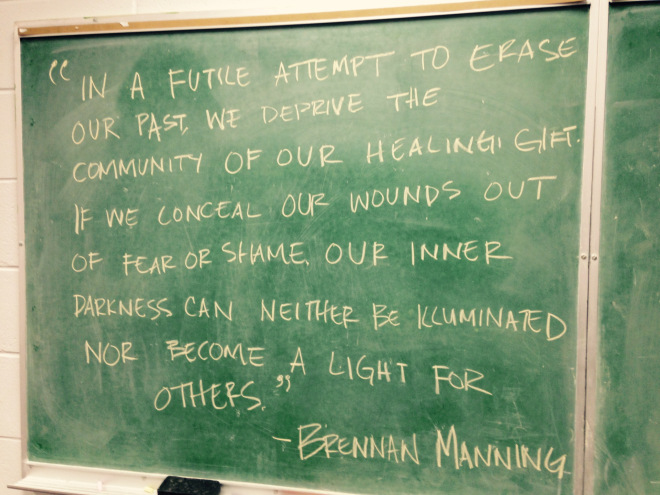 “IN A FUTILE ATTEMPT TO ERASE
OUR PAST, WE DEPRIVE THE
COMMUNITY OF OUR HEALING GIFT.
IF WE CONCEAL OUR WOUNDS OUT
OF FEAR OR SHAME, OUR INNER
DARKNESS CAN NEITHER BE ILLUMINATED
NOR BECOME A LIGHT FOR
OTHERS.”
- BRENNAN MANNING